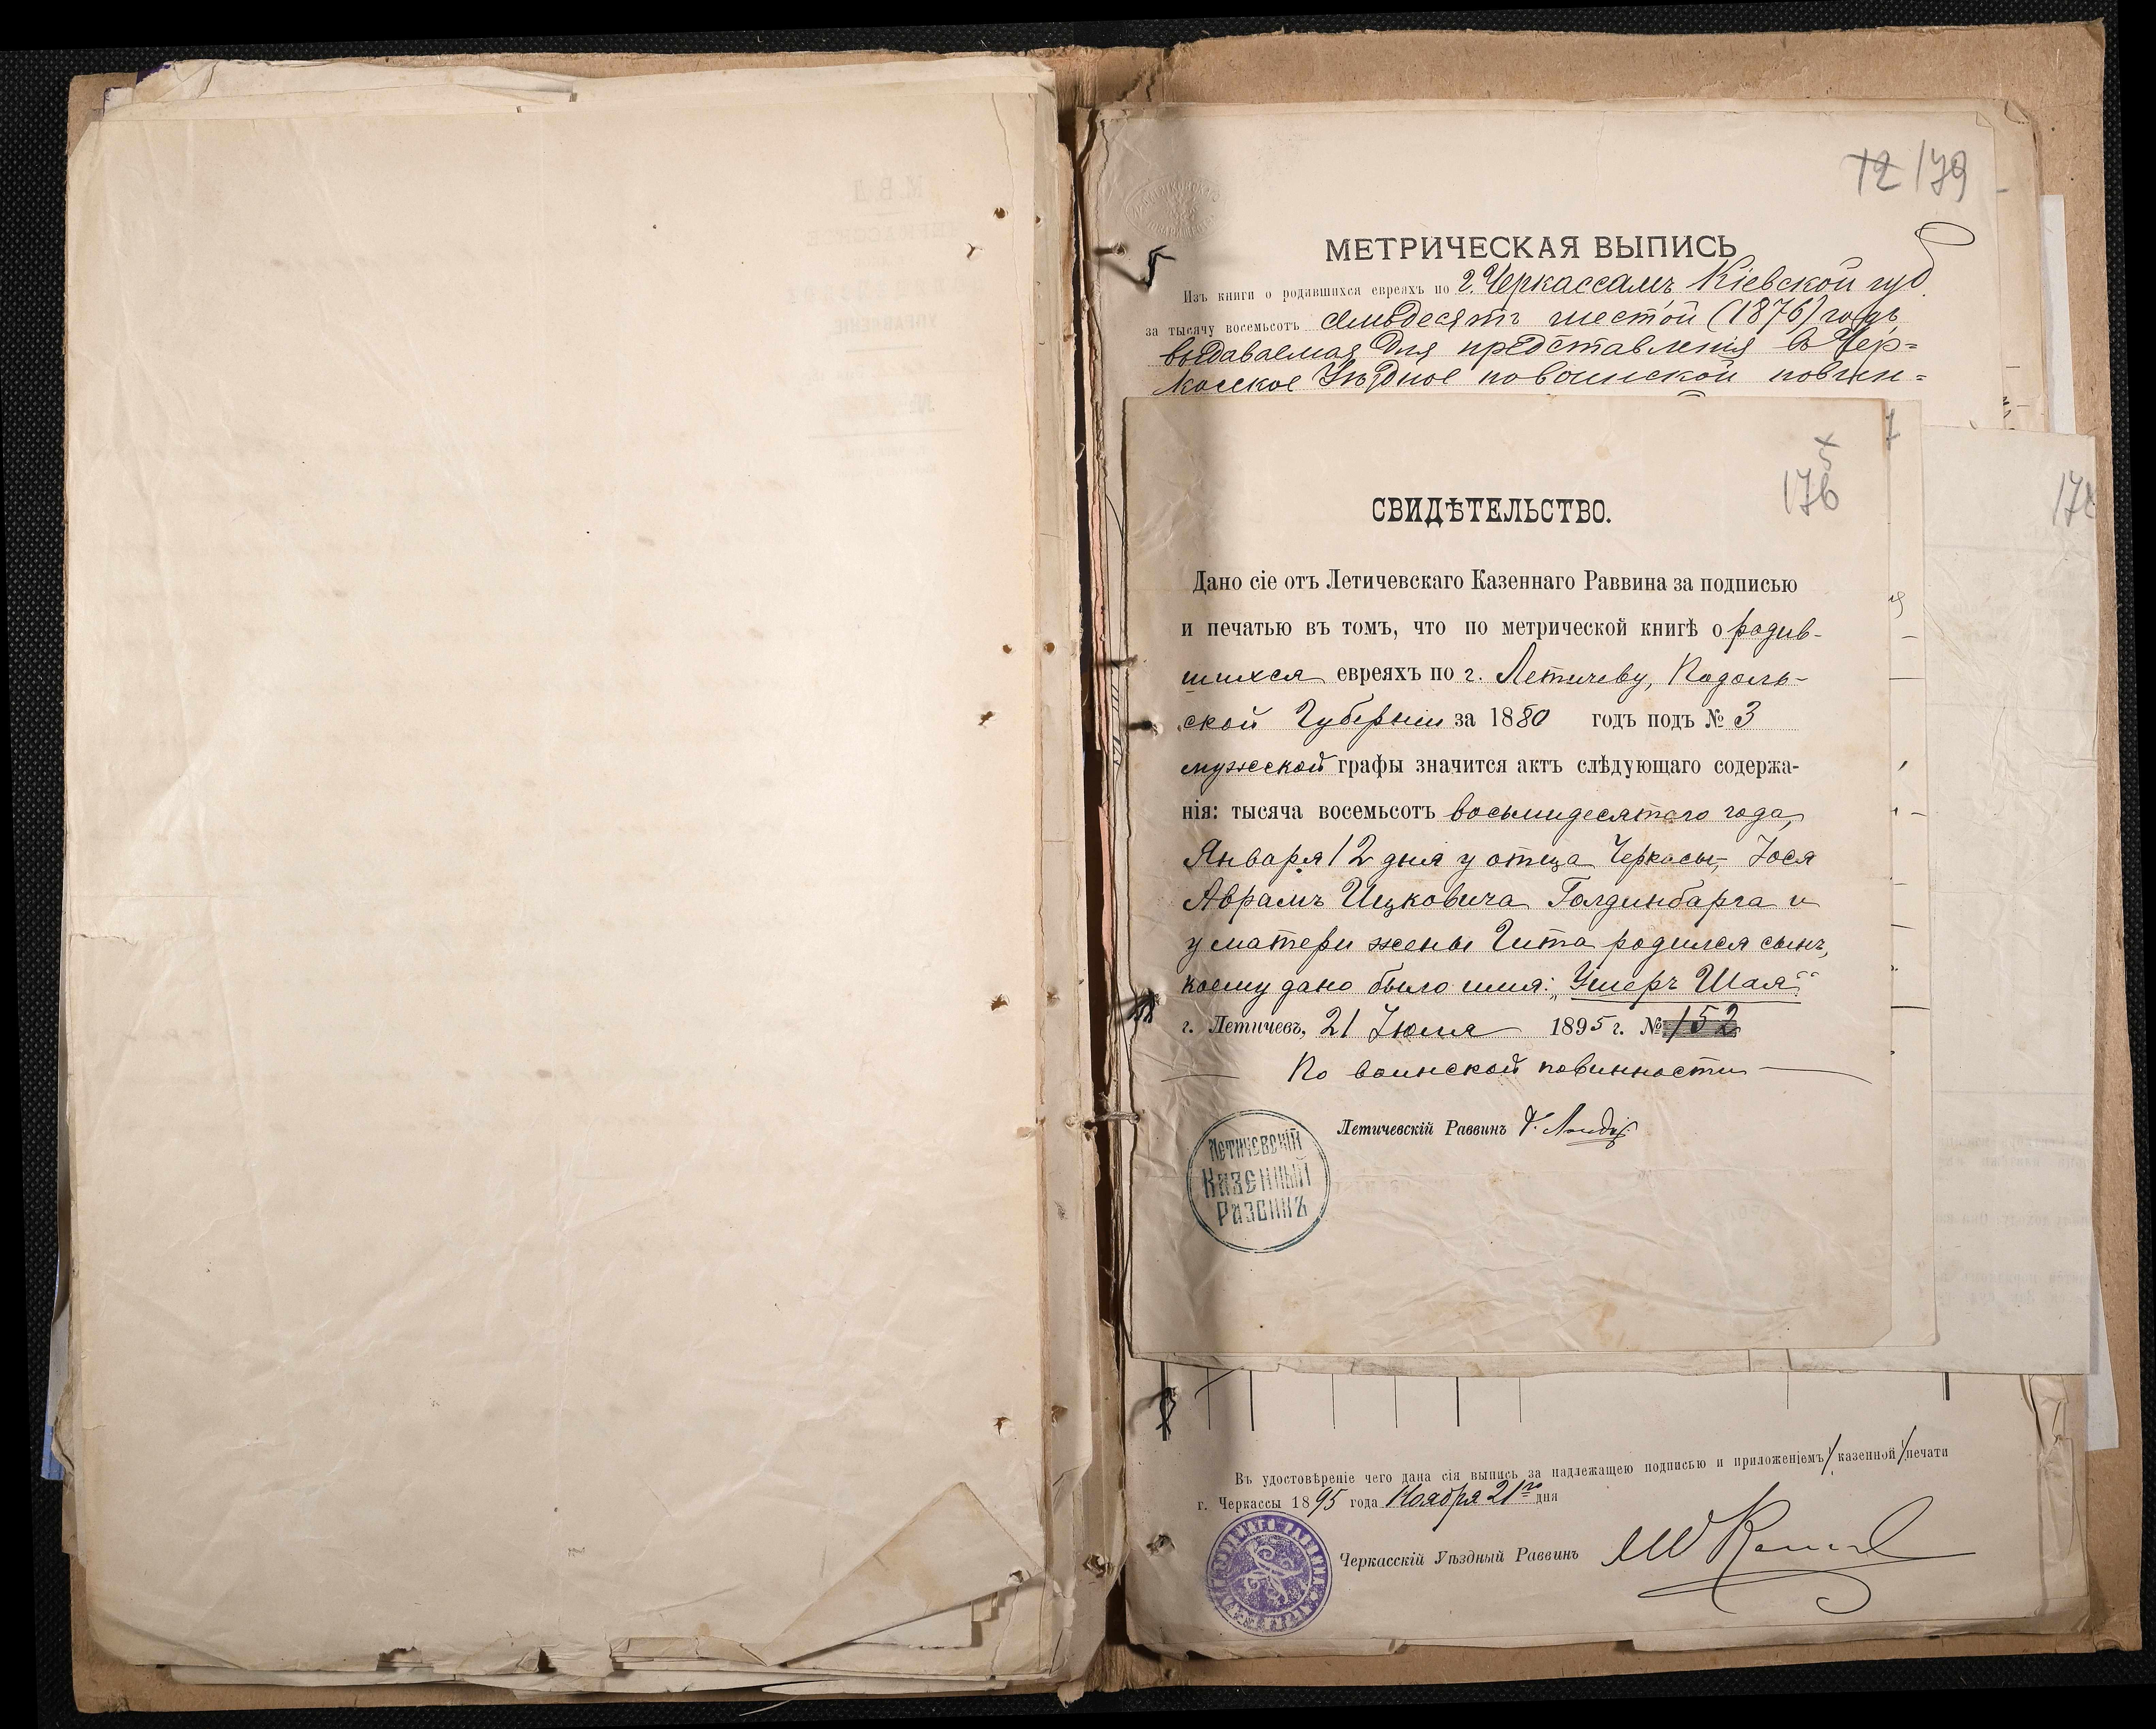 12 179
МЕТРИЧЕСКАЯ ВЫПИСЬ
Изъ книги о родившихся евреяхъ по г. Черкассамъ Кіевской губ
за тысячу восемьсотъ семьдесятъ шестой (1876) годъ
выдаваемая для представленія въ Чер=
касское Уѣздное по воинской повин=
5
176
178
СВИДѢТЕЛЬСТВО.
Дано сіе отъ Летичевскаго Казеннаго Раввина за подписью
и печатью въ томъ, что по метрической книгѣ о родив-
шихся евреяхъ по г. Летичеву, Подоль-
ской Губерніи за 1880 годъ подъ № 3
мужеской графы значится актъ слѣдующаго содержа-
нія: тысяча восемьсотъ восьмидесятаго года,
Января 12 дня у отца Черкасы, Іося
Аврамъ Ицковича Голдинбарга и
у матери жены Гита родился сынъ,
коему дано было имя: „Ушеръ Шая“
г. Летичевъ, 21 Іюля 1895 г. № 152
По воинской повинности
Летичевскій Раввинъ
Летичевскій
Казенный
Раввинъ
Въ удостовѣреніе чего дана сія выпись за надлежащею подписью и приложеніемъ казенной печати
г. Черкассы 1895 года Ноября 21го дня
Черкасскій Уѣздный Раввинъ